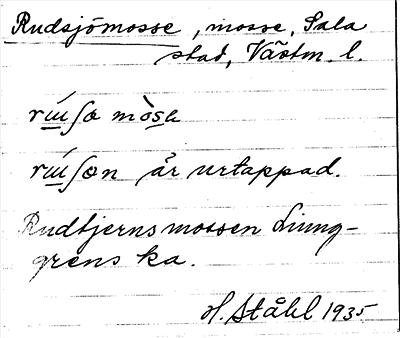 Rudsjömosse, mosse, Sala
stad, Västm. l.
mòsa
är urtappad.
Rudtjernsmossen Ljung-
grens ka.
H. Ståhl 1935